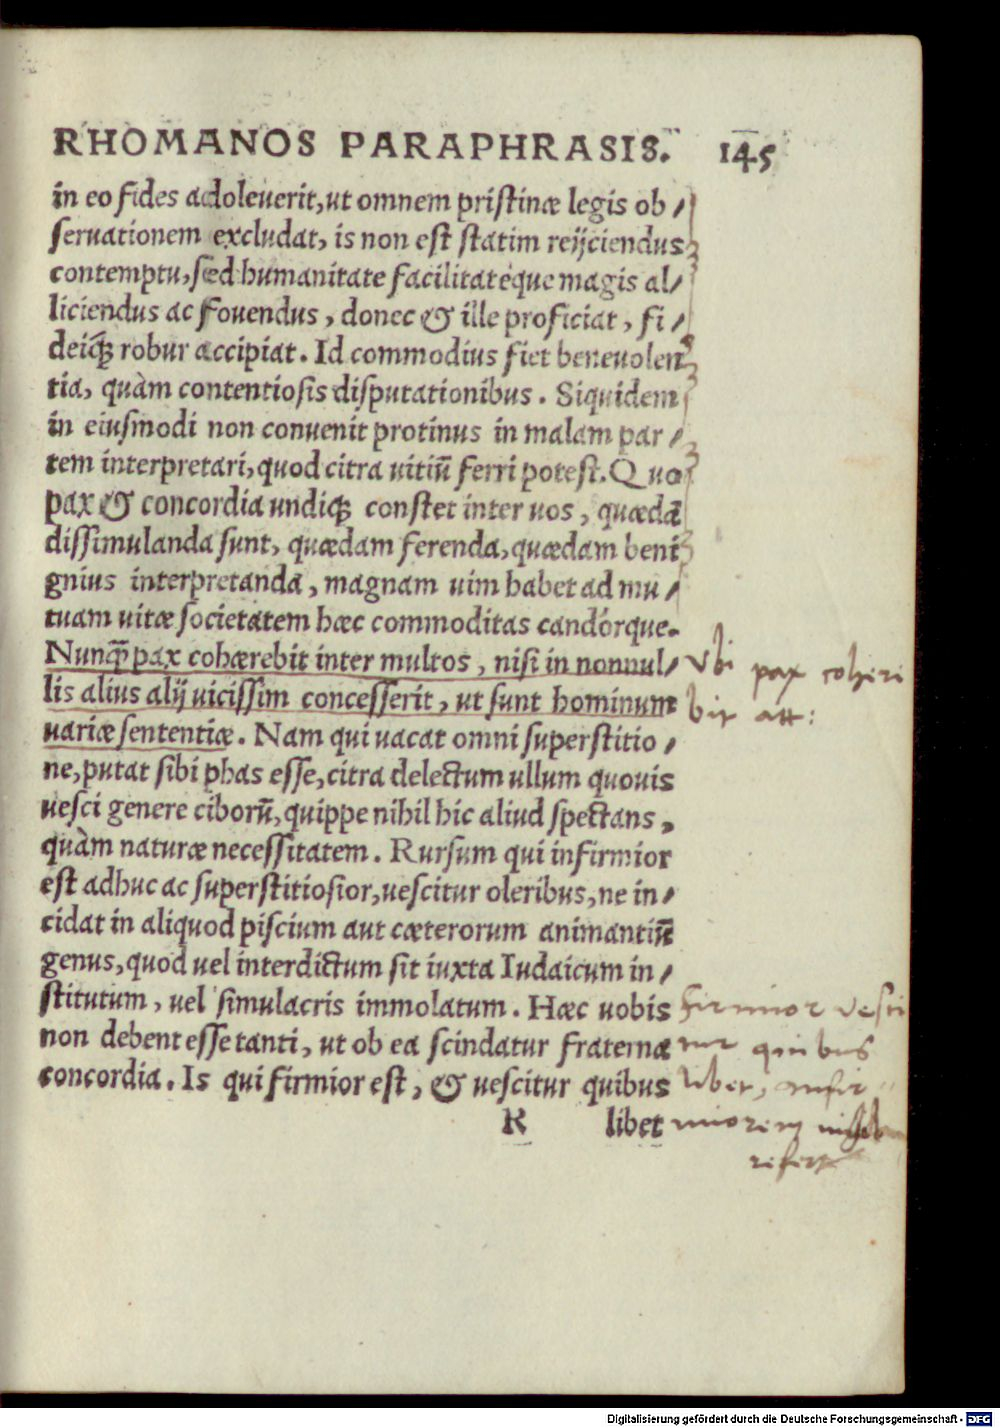 RHOMANOS PARAPHRASIS. 145
in eo fides adoleuerit, ut omnem pristinæ legis ob/
seruationem excludat, is non est statim reijciendus
contemptu, sed humanitate facilitatéque magis al/
liciendus ac fouendus, donec & ille proficiat, fi/
deiq́ꝫ robur accipiat. Id commodius fiet beneuolen
tia, quàm contentiosis disputationibus. Siquidem
in eiusmodi non conuenit protinus in malam par/
tem interpretari, quod citra uitiū ferri potest. Quo
pax & concordia undiq́ꝫ constet inter uos, quædā
dissimulanda sunt, quædam ferenda, quædam beni
gnius interpretanda, magnam uim habet ad mu/
tuam uitæ societatem hæc commoditas candórque.
Nunq̄ pax cohærebit inter multos, nisi in nonnul/
lis alius alij uicissim concesserit, ut sunt hominum
uariæ sententiæ. Nam qui uacat omni superstitio/
ne, putat sibi phas esse, citra delectum ullum quouis
uesci genere ciborū, quippe nihil hic aliud spectans,
quàm naturæ necessitatem. Rursum qui infirmior
est adhuc ac superstitiosior, uescitur oleribus, ne in/
cidat in aliquod piscium aut cæterorum animantiū
genus, quod uel interdictum sit iuxta Iudaicum in/
stitutum, uel simulacris immolatum. Hæc uobis
non debent esse tanti, ut ob ea scindatur fraterna
concordia. Is qui firmior est, & uescitur quibus
R libet
Vbi pax coheri
bit att:
firmior vesci
tur quibus
libet, infir
miorem